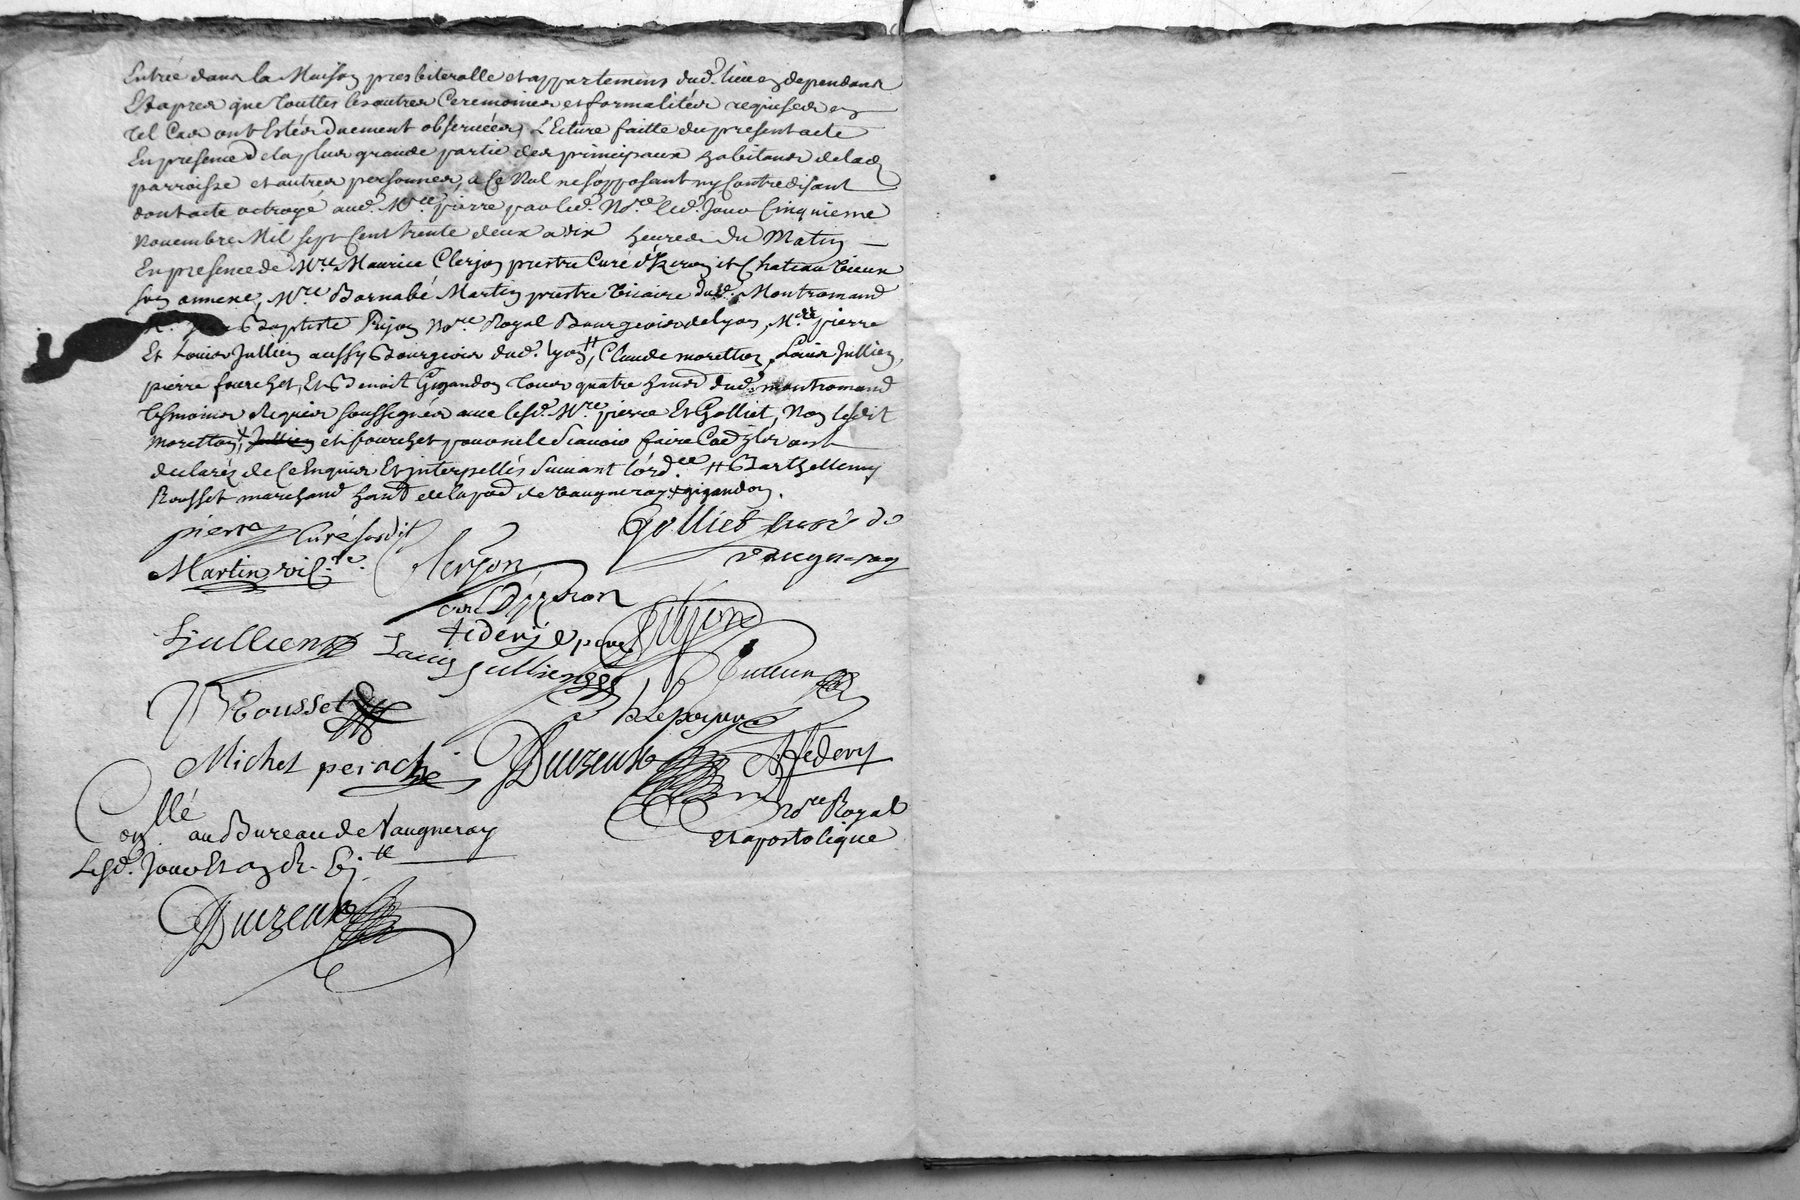 Entrée dans la Maison presbiteralle et appartemens dud. lieu en dependans
Et apres que touttes les autres Ceremonies et formalités requises en
tel Cas ont Estés duement observées, L'Ecture faitte du present acte
En presence de la plus grande partie des principaux habitans de lad
parroisse et autres personnes, a Ce Nul ne s'opposant ny Contredisant
dont acte octroyé aud. Mre pierre par led. Nore led. Jour Cinquieme
Novembre Mil sept Cent trente deux a dix heures du Matin
En presence de Mre Maurice Clerjon prestre Curé d'Izeron et Chateau vieux
son annexe, Mre Barnabé Martin prestre vicaire dud. Montromand
Baptiste Prijon Nore Royal Bourgeois de lyon, Mre pierre
Et Louis Jullien aussy Bourgeois dud. lyon #, Claude moretton, Louis Jullien,
pierre fourchet, Et Benoit Gigandon tous quatre habts dud. montromand
tesmoins Requis soussignés avec lesd. Mre pierre Et Golliet, Non ledit
moretton +, Jullien et fourchet pour ne le Scavoir faire Co[mme] ilz ont
declarés de Ce Enquis Et interpellés Suivant l'ordce # Barthellemy
Rousset marchand habt de la pad de Vaugneray + gigandon.
pierre Curé susdit
Golliet curé de
Vaugneray
Martin vic.re
Clerjon
curé D'yzeron
Prijon
Jullien
Louis Jullien
Rousset
Michel perache
Duizeux
federy
Nore Royal
et apostolique
Conllé
au Bureau de Vaugneray
Lesd. Jour Et an
Duizeux